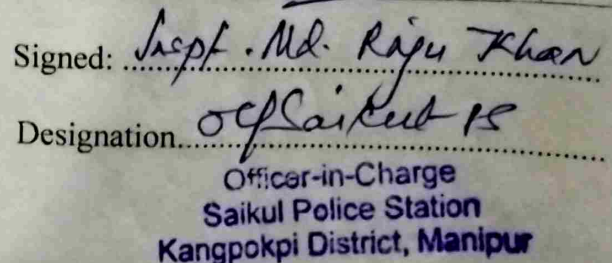 Signed: Inspt. Md. Raju Khan
Designation OC/Saikul PS
Officer-in-Charge
Saikul Police Station
Kangpokpi District, Manipur